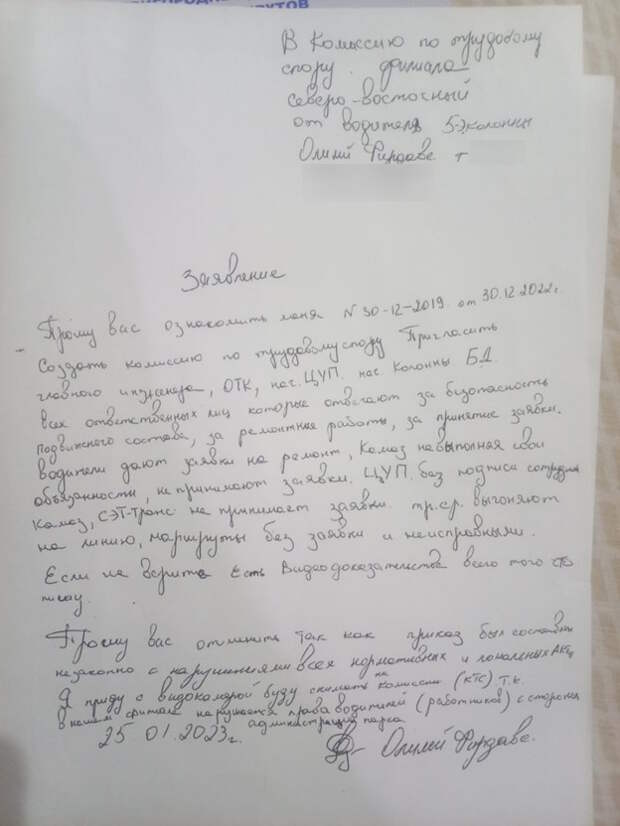 РУТОВ
В Комиссию по трудовому
спору филиала
северо-восточный
от водителя 5-й колонны
Олимй Фирдаве т
Заявление
Прошу вас ознакомить меня N 30-12-2019 от 30.12.2022г.
Создать комиссию по трудовому спору Пригласить
главного инженера, ОТК, нас. ЦУП. нас. Колонны Б.Д
всех ответственных лиц которые отвечают за безопасность
подвижного состава, за ремонтные работы, за принятие заявки.
водители дают заявки на ремонт, Камаз не выполняя свои
объязанности, не принимают заявки. ЦУП. без подписа сотрудник
Камаз, СЭТ-Транс не принимает заявки. тр.ср. выгоняют
на линию, маршруты без заявки и неисправными.
Если не верите Есть Видеодоказательства всего того что
писал.
Прошу вас отменить так как приказ был составлен
незаконно с нарушениями всех нормативных и локальных Акты
Я приду с видокамерой буду снимать на комиссии (КТС) т.к.
в нашем филиале нарушается права водителей (работников) с стороны
администрации парка
25 01.2023г. Олимй Фирдаве.